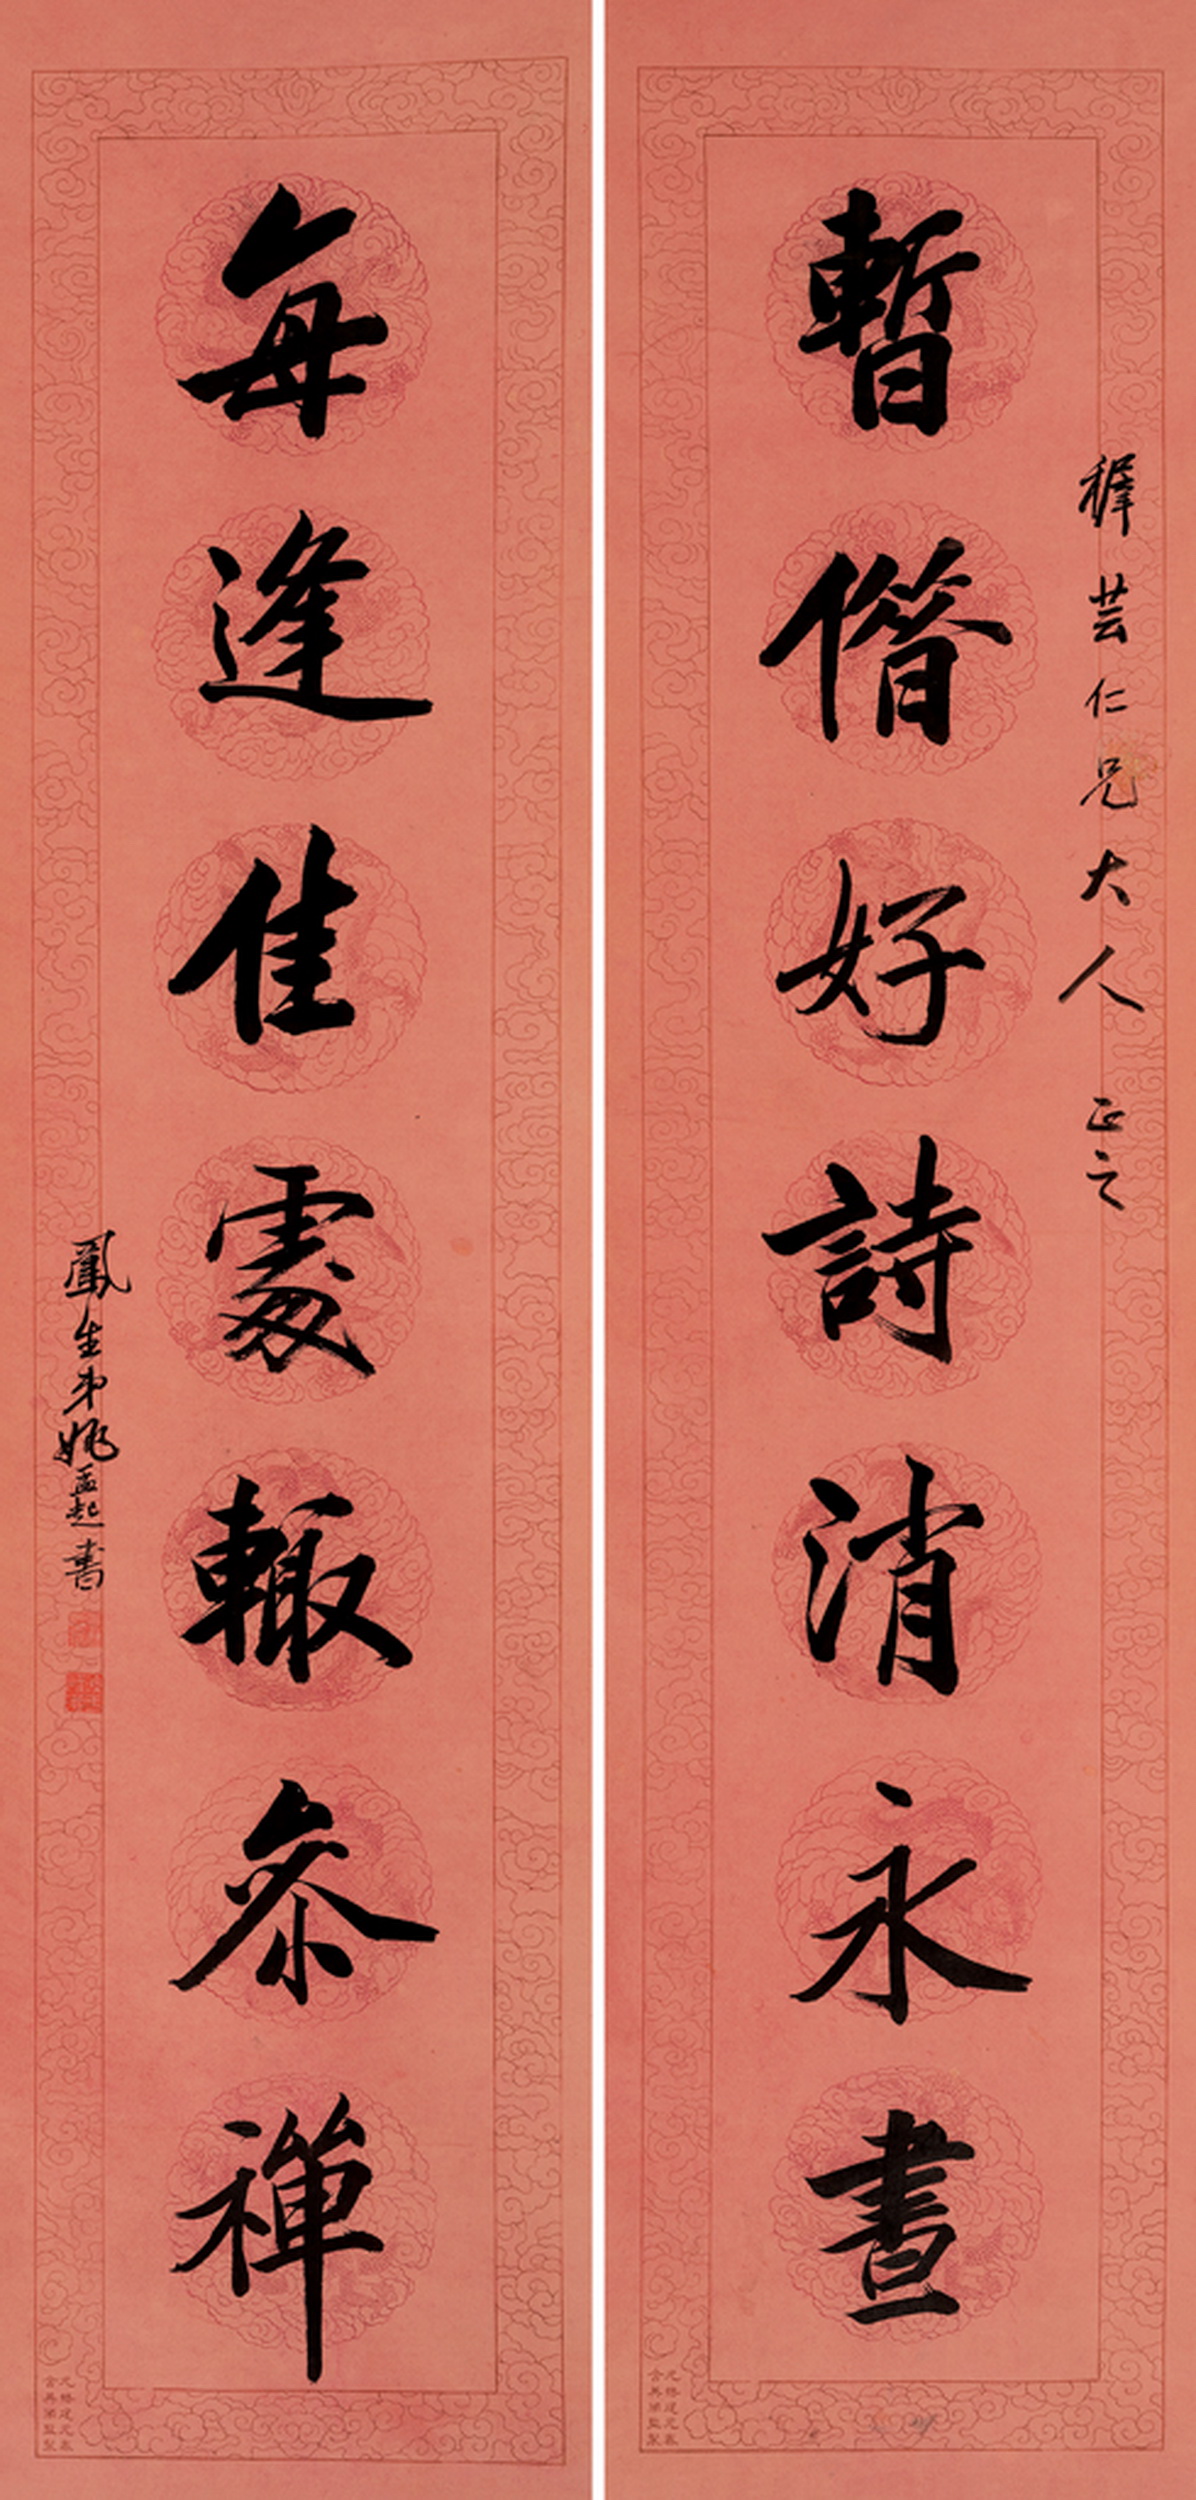 稺芸仁兄大人 正之
暫借好詩消永晝
每逢佳處輒參禪
鳳生弟姚孟起書